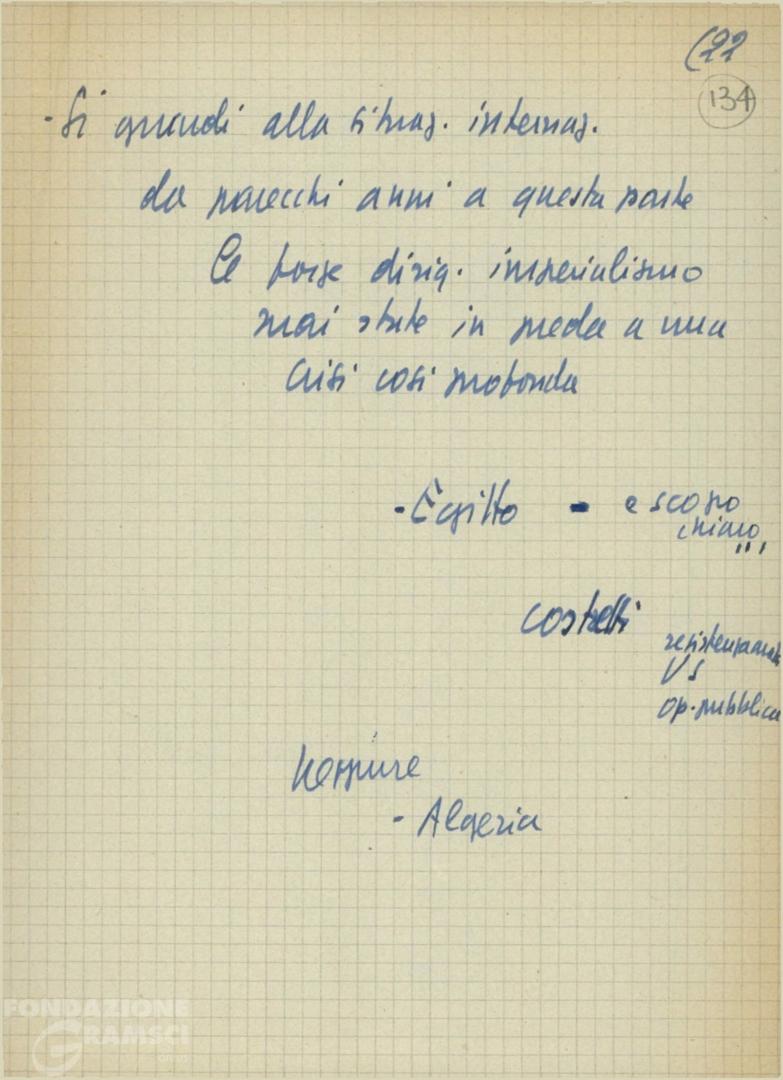 (22
134
- Si guardi alla situaz. internaz.
da parecchi anni a questa parte
le forze dirig. imperialismo
mai state in preda a una
crisi così profonda
- Egitto - e scopo
chiaro
costretti
resistenza
US
op. pubblica
Neppure
- Algeria
FONDAZIONE
GRAMSCI